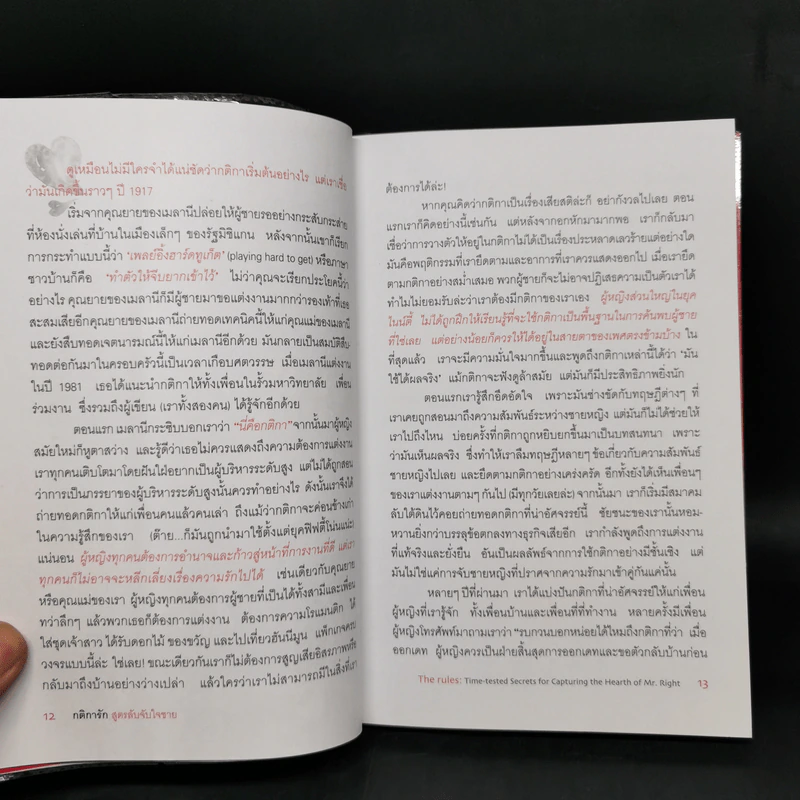 ดูเหมือนไม่มีใครจำได้แน่ชัดว่ากติกาเริ่มต้นอย่างไร แต่เราเชื่อ
ว่ามันเกิดขึ้นราวๆ ปี 1917
เริ่มจากคุณยายของเมลานีปล่อยให้ผู้ชายรออย่างกระสับกระส่าย
ที่ห้องนั่งเล่นที่บ้านในเมืองเล็กๆ ของรัฐมิชิแกน หลังจากนั้นเขาก็เรียก
การกระทำแบบนี้ว่า ‘เพลย์อิ้งฮาร์ดทูเก็ต’ (playing hard to get) หรือภาษา
ชาวบ้านก็คือ ‘ทำตัวให้จีบยากเข้าไว้’ ไม่ว่าคุณจะเรียกประโยคนี้ว่า
อย่างไร คุณยายของเมลานีก็มีผู้ชายมาขอแต่งงานมากกว่ารองเท้าที่เธอ
สะสมเสียอีกคุณยายของเมลานีถ่ายทอดเทคนิคนี้ให้แก่คุณแม่ของเมลานี
และยังสืบทอดเจตนารมณ์นี้ให้แก่เมลานีอีกด้วย มันกลายเป็นสมบัติสืบ
ทอดต่อกันมาในครอบครัวนี้เป็นเวลาเกือบศตวรรษ เมื่อเมลานีแต่งงาน
ในปี 1981 เธอได้แนะนำกติกาให้ทั้งเพื่อนในรั้วมหาวิทยาลัย เพื่อน
ร่วมงาน ซึ่งรวมถึงผู้เขียน (เราทั้งสองคน) ได้รู้จักอีกด้วย
ตอนแรก เมลานีกระซิบบอกเราว่า “นี่คือกติกา” จากนั้นมาผู้หญิง
สมัยใหม่ก็หูตาสว่าง และรู้ดีว่าเธอไม่ควรแสดงถึงความต้องการแต่งงาน
เราทุกคนเติบโตมาโดยฝันใฝ่อยากเป็นผู้บริหารระดับสูง แต่ไม่ได้ถูกสอน
ว่าการเป็นภรรยาของผู้บริหารระดับสูงนั้นควรทำอย่างไร ดังนั้นเราจึงได้
ถ่ายทอดกติกาให้แก่เพื่อนคนแล้วคนเล่า ถึงแม้ว่ากติกาจะค่อนข้างเก่า
ในความรู้สึกของเรา (ต๊าย...ก็มันถูกนำมาใช้ตั้งแต่ยุคฟิฟตี้โน่นแน่ะ)
แน่นอน ผู้หญิงทุกคนต้องการอำนาจและก้าวสู่หน้าที่การงานที่ดี แต่เรา
ทุกคนก็ไม่อาจจะหลีกเลี่ยงเรื่องความรักไปได้ เช่นเดียวกับคุณยาย
หรือคุณแม่ของเรา ผู้หญิงทุกคนต้องการผู้ชายที่เป็นได้ทั้งสามีและเพื่อน
ทว่าลึกๆ แล้วพวกเธอก็ต้องการแต่งงาน ต้องการความโรแมนติก ได้
ใส่ชุดเจ้าสาว ได้รับดอกไม้ ของขวัญ และไปเที่ยวฮันนีมูน แพ็กเกจครบ
วงจรแบบนี้ล่ะ ใช่เลย! ขณะเดียวกันเราก็ไม่ต้องการสูญเสียอิสรภาพหรือ
กลับมาถึงบ้านอย่างว่างเปล่า แล้วใครว่าเราไม่สามารถมีในสิ่งที่เรา
12 กติการัก สูตรลับจับใจชาย
ต้องการได้ล่ะ!
หากคุณคิดว่ากติกาเป็นเรื่องเสียสติล่ะก็ อย่ากังวลไปเลย ตอน
แรกเราก็คิดอย่างนี้เช่นกัน แต่หลังจากอกหักมามากพอ เราก็กลับมา
เชื่อว่าการวางตัวให้อยู่ในกติกาไม่ได้เป็นเรื่องประหลาดเลวร้ายแต่อย่างใด
มันคือพฤติกรรมที่เรายึดตามและอาการที่เราควรแสดงออกไป เมื่อเรายึด
ตามกติกาอย่างสม่ำเสมอ พวกผู้ชายก็จะไม่อาจปฏิเสธความเป็นตัวเราได้
ทำไมไม่ยอมรับล่ะว่า เราต้องมีกติกาของเราเอง ผู้หญิงส่วนใหญ่ในยุค
ไนน์ตี้ ไม่ได้ถูกฝึกให้เรียนรู้ที่จะใช้กติกาเป็นพื้นฐานในการค้นพบผู้ชาย
ที่ใช่เลย แต่อย่างน้อยก็ควรให้ได้อยู่ในสายตาของเพศตรงข้ามบ้าง ใน
ที่สุดแล้ว เราจะมีความมั่นใจมากขึ้นและพูดถึงกติกาเหล่านี้ได้ว่า ‘มัน
ใช้ได้ผลจริง’ แม้กติกาจะฟังดูล้าสมัย แต่มันก็มีประสิทธิภาพยิ่งนัก
ตอนแรกเรารู้สึกอึดอัดใจ เพราะมันช่างขัดกับทฤษฎีต่างๆ ที่
เราเคยถูกสอนมาถึงความสัมพันธ์ระหว่างชายหญิง แต่มันก็ไม่ได้ช่วยให้
เราไปถึงไหน บ่อยครั้งที่กติกาถูกหยิบยกขึ้นมาเป็นบทสนทนา เพราะ
ว่ามันเห็นผลจริง ซึ่งทำให้เราลืมทฤษฎีหลายๆ ข้อเกี่ยวกับความสัมพันธ์
ชายหญิงไปเลย และยึดตามกติกาอย่างเคร่งครัด อีกทั้งยังได้เห็นเพื่อนๆ
ของเราแต่งงานตามๆ กันไป (มีทุกวัยเลยล่ะ) จากนั้นมา เราก็เริ่มมีสมาคม
ลับใต้ดินไว้คอยถ่ายทอดกติกาที่น่าอัศจรรย์นี้ ชัยชนะของเรานั้นหอม-
หวานยิ่งกว่าบรรลุข้อตกลงทางธุรกิจเสียอีก เรากำลังพูดถึงการแต่งงาน
ที่แท้จริงและยั่งยืน อันเป็นผลลัพธ์จากการใช้กติกาอย่างมีชั้นเชิง แต่
มันไม่ใช่แค่การจับชายหญิงที่ปราศจากความรักมาเข้าคู่กันแค่นั้น
หลายๆ ปีที่ผ่านมา เราได้แบ่งปันกติกาที่น่าอัศจรรย์ให้แก่เพื่อน
ผู้หญิงที่เรารู้จัก ทั้งเพื่อนบ้านและเพื่อนที่ที่ทำงาน หลายครั้งมีเพื่อน
ผู้หญิงโทรศัพท์มาถามเราว่า “รบกวนบอกหน่อยได้ไหมถึงกติกาที่ว่า เมื่อ
ออกเดท ผู้หญิงควรเป็นฝ่ายสิ้นสุดการออกเดทและขอตัวกลับบ้านก่อน
The rules: Time-tested Secrets for Capturing the Hearth of Mr. Right 13